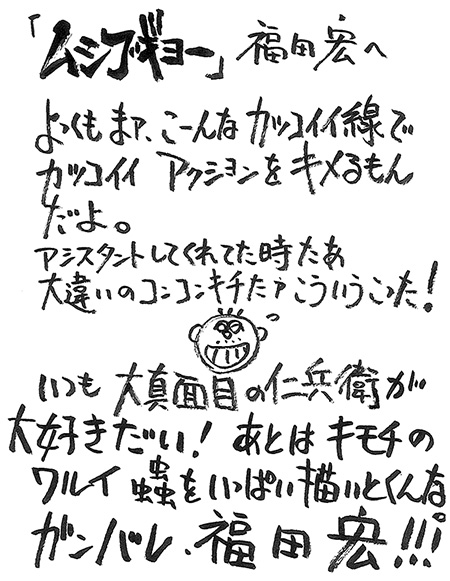 「ムシブギョー」福田宏へ
よっくもまァ、こーんなカッコイイ線で
カッコイイ アクションをキメるもん
だよ。
アシスタントしてくれてた時たあ
大違いのコンコンキチたァこういうこった!
いつも大真面目の仁兵衛が
大好きだい! あとはキモチの
ワルイ蟲をいっぱい描いとくんな
ガンバレ、福田宏!!!